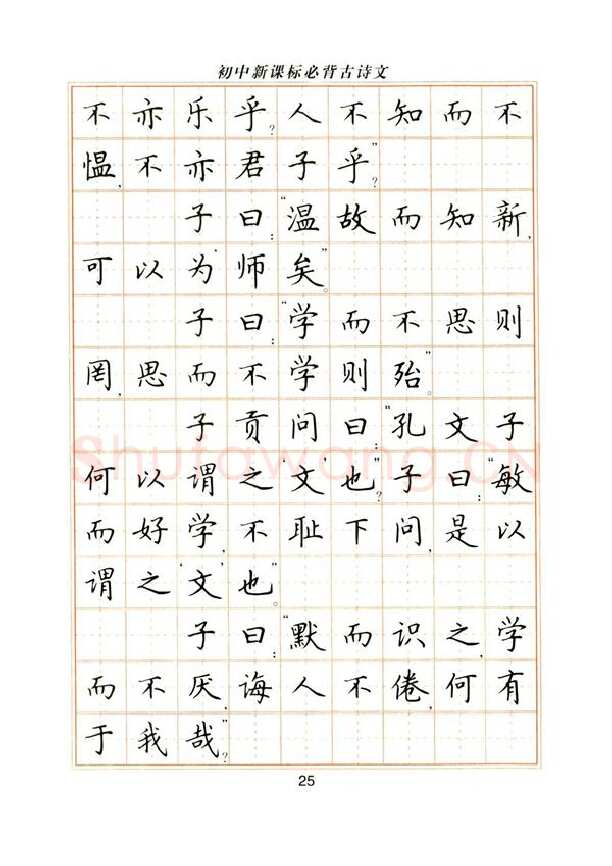 初中新课标必背古诗文
不亦乐乎？人不知而不
愠，不亦君子乎？”
子曰：“温故而知新，
可以为师矣”。
子曰：“学而不思则
罔，思而不学则殆”。
子贡问曰：“孔文子
何以谓之‘文’也”？子曰：“敏
而好学，不耻下问，是以
谓之‘文’也”。
子曰：“默而识之，学
而不厌，诲人不倦，何有
于我哉”？
Shufawang.CN
25